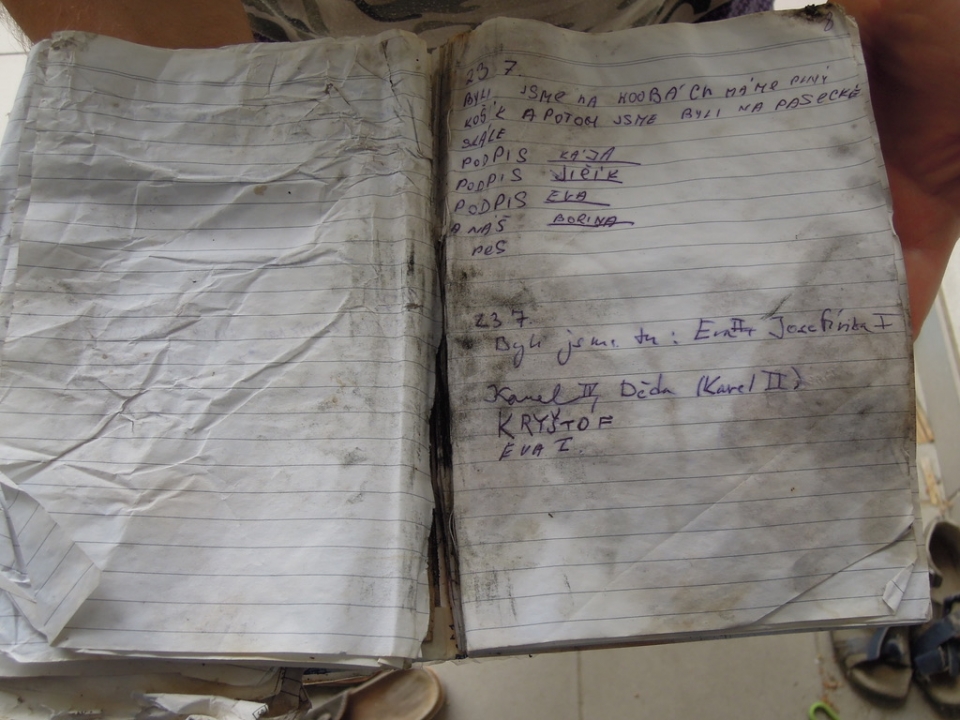 23 7.
BYLI JSME NA HOUBÁCH MÁME PLNÝ
KOŠÍK A POTOM JSME BYLI NA PASECKÉ
SKÁLE
PODPIS KÁJA
PODPIS JIŘÍK
PODPIS EVA
A NÁŠ BORINA
PES
23 7.
Byli jsme tu: Eva II, Josefínka I
Karel IV, Děda (Karel II)
KRYŠTOF
EVA I